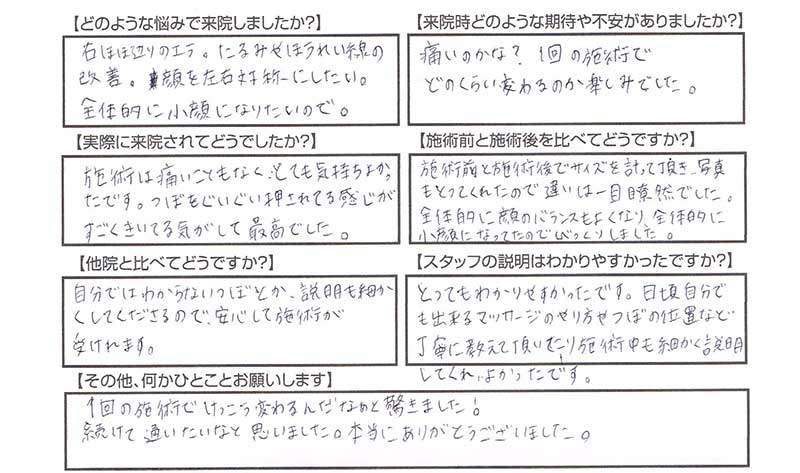 【どのような悩みで来院しましたか?】
右ほほ辺りのエラ。たるみやほうれい線の
改善。顔を左右対称にしたい。
全体的に小顔になりたいので。
【来院時どのような期待や不安がありましたか?】
痛いのかな? 1回の施術で
どのくらい変わるのか楽しみでした。
【実際に来院されてどうでしたか?】
施術は痛いこともなく、とても気持ちよかっ
たです。つぼをぐいぐい押されてる感じが
すごくきいてる気がして最高でした。
【施術前と施術後を比べてどうですか?】
施術前と施術後でサイズを計って頂き、写真
もとってくれたので違いは一目瞭然でした。
全体的に顔のバランスもよくなり、全体的に
小顔になってたのでびっくりしました。
【他院と比べてどうですか?】
自分ではわからないつぼとか、説明も細か
くしてくださるので、安心して施術が
受けれます。
【スタッフの説明はわかりやすかったですか?】
とってもわかりやすかったです。日頃自分で
も出来るマッサージのやり方やつぼの位置など
丁寧に教えて頂いたり施術中も細かく説明
してくれ、よかったです。
【その他、何かひとことお願いします】
1回の施術でけっこう変わるんだなぁと驚きました!
続けて通いたいなと思いました。本当にありがとうございました。